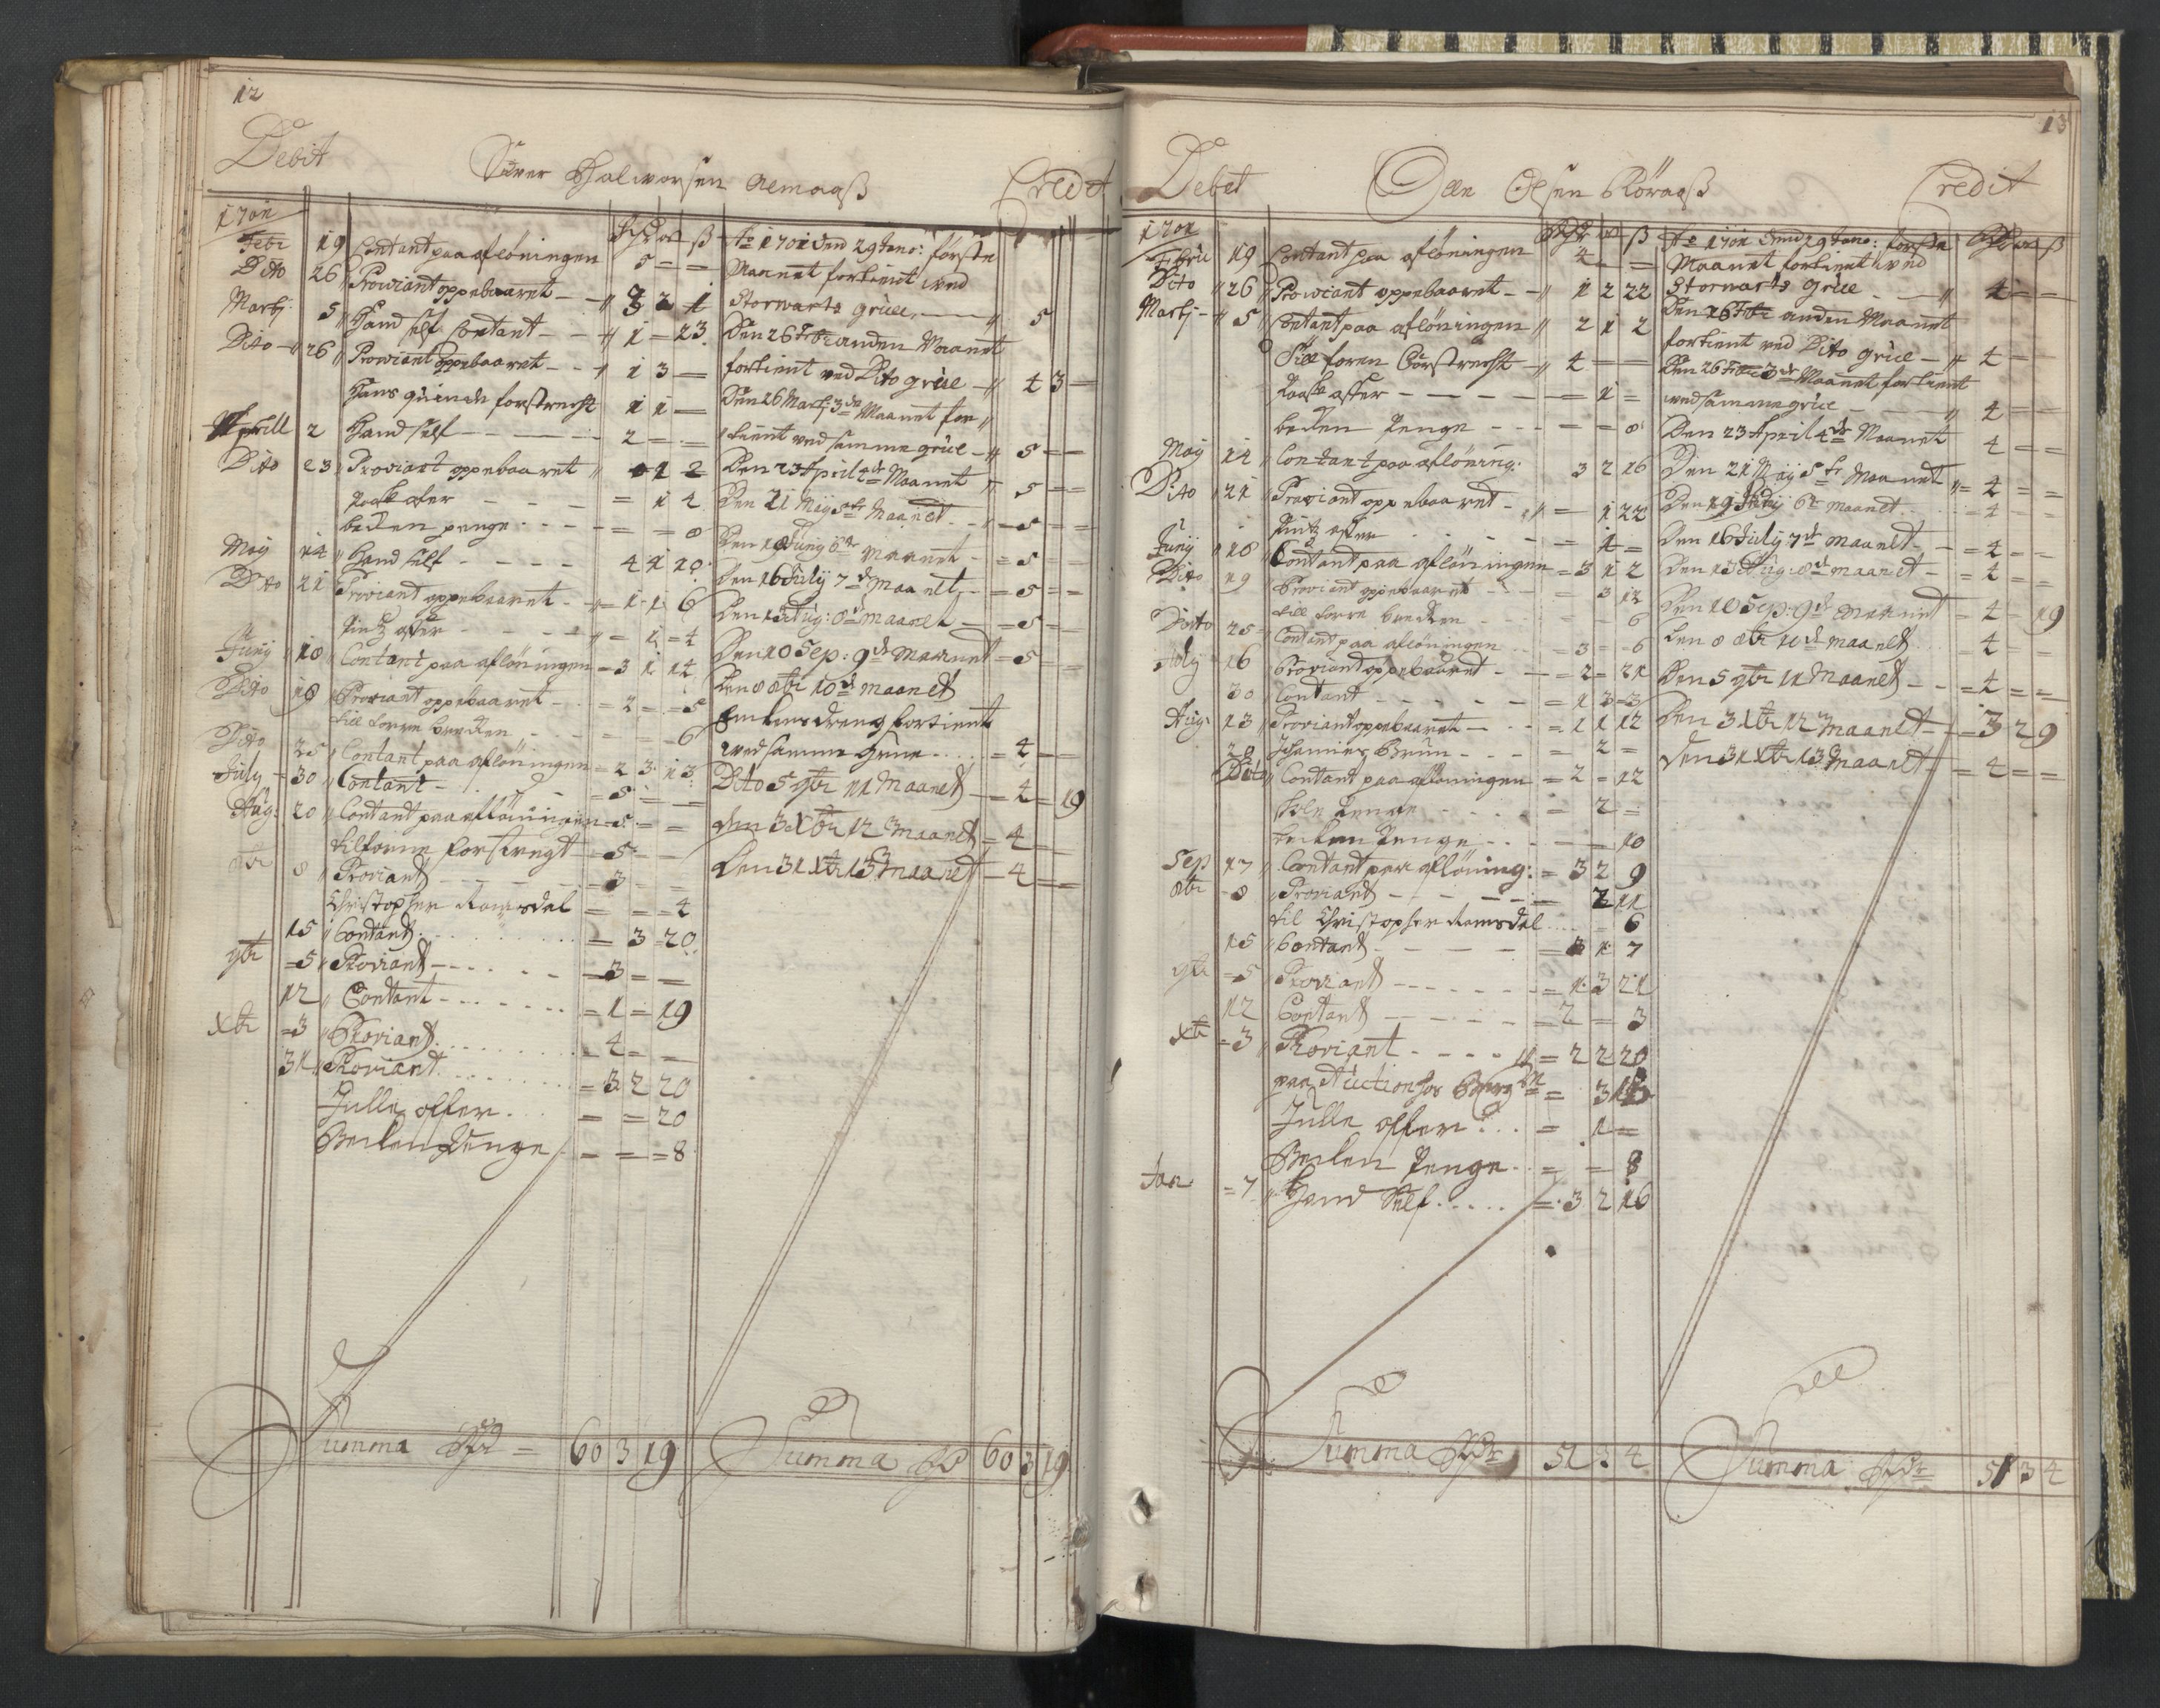 12
Debit Halworsen Credit
1701
Febr 19 Contant paa aflöningen 5 = =
Dito 26 Prowiant oppebaaret 3 2 1
Martj 5 Hand self Contant 1 = 23
Dito 26 Prowiant oppebaaret 1 3 =
Hans quinde forstrecht 1 1 =
Aprill 2 Hand self 2 = =
Dito 23 Proviant oppebaaret 1 2
Paaske ofer = 1 4
becken penge = = 8
Maij 14 Hand self 4 1 10
Dito 21 Proviant oppebaaret = 1 1 6
Pintz offer = 1 = 4
Junij 18 Contant paa aflöningen = 3 1 14
Dito 19 Proviant oppebaaret = 2 = 5
till torre = = 6
Dito 25 Contant paa aflöningen = 2 3 13
July 30 Contant = 5 = =
Aug: 20 Contant paa aflöningen = 5 = =
tilforne forstregt = 5 = =
8br 8 Proviant = 3 = =
Christopher Ramsdal = = = 4
15 Contant = 3 = 20
9br = 5 Proviant = 3 = =
12 Contant = 1 = 19
Xbr = 3 Proviant = 4 = =
31 Proviant = 3 2 20
Julle offer = = 20
Becken Penge = = = 8
Summa = 60 3 19
Ao 1701 den 29 Jano: förste
Maanet fortient ved
Storwarts grue 5
Den 26 Febr anden Maanet
fortient ved Dito grue 4 3 =
Den 26 Martj 3de Maanet for
tient ved samme grue 5 = =
Den 23 April 4de Maanet 5 = =
Den 21 Maij 5te Maanet = 5 = =
Den 18 Junij 6te Maanet = 5 = =
Den 16 Julij 7de Maanet = 5 = =
Den 13 Aug: 8de maanet = 5 =
Den 10 Sep: 9de Maanet = 5 = =
Den 8 8br 10de maanet
Enkens dreng fortient
ved samme Grue = 4 = =
Dito 5 9br 11 Maanet = 4 = 19
den 3 Xbr 12 maanet = 4 =
Den 31 Xbr 13 maanet = 4 = =
Summa 60 3 19
13
Debet Olsen Röraaß Credit
1701
Febru 19 Contant paa aflöningen 4 = =
Dito 26 Prowiant oppebaaret 1 2 22
Martj 5 Contant paa aflöningen 2 1 2
Till foren Forstrecht 4 = =
Paaske offer = 1 =
becken Penge = = 8
Maij 14 Contant paa aflöning: 3 2 16
Dito 21 Proviant oppebaaret = 1 22
Pintz offer = 1 =
Junij 18 Contant paa aflöningen = 3 1 2
Dito 19 Proviant oppebaaret = 3 12
till torre = = 6
Dito 25 Contant paa aflöningen = 3 = 6
July 16 Proviant oppebaaret = 2 = 21
30 Contant = 1 3 = 3
Aug: 13 Proviant oppebaaret = 1 1 12
20 Johannes Bruun = 2 =
Dito Contant paa aflöningen = 2 = 12
Penge = 2 =
becken Penge = = 10
Sep 17 Contant paa aflöning: = 3 2 9
8br = 8 Proviant = 2 11
til Christopher Ramsdal = 6
15 Contant = 3 1 7
9br = 5 Proviant = 1 3 21
12 Contant = 2 = 3
Xbr = 3 Proviant = 2 2 20
paa Auction hos = 3
Julle offer = 1 =
Becken Penge = = 8
Jan = 7 Hand Self = 3 2 16
Summa 51 3 4
Ao 1701 den 29 Jano: förste
Maanet fortient ved
Storwarts grue 4 = =
Den 26 Febr anden Maanet
fortient ved Dito grue 4 =
Den 26 3de Maanet fortient
ved samme grue 4 = =
Den 23 April 4de Maanet 4 = =
Den 21 Maij 5te Maanet = 4 = =
Den 19 6te maanet = 4 = =
Den 16 Julij 7de maanet = 4 = =
Den 13 Aug: 8de maanet = 4 = =
Den 10 Sep: 9de maanet = 4 = 19
Den 8 8br 10de maanet = 4 = =
Den 5 9br 11 Maanet = 4 = =
Den 3 Xbr 12 maanet = 3 2 9
Den 31 Xbr 13 maanet = 4 = =
Summa 51 3 4